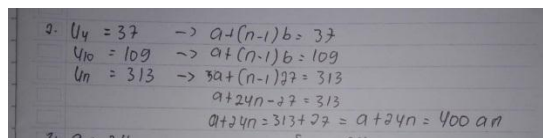 2. U4 = 37 -> a+(n-1)b = 37
U10 = 109 -> a+(n-1)b = 109
Un = 313 -> 3a+(n-1)27 = 313
a+24n-27 = 313
a+24n = 313+27 = a+24n = 400 an